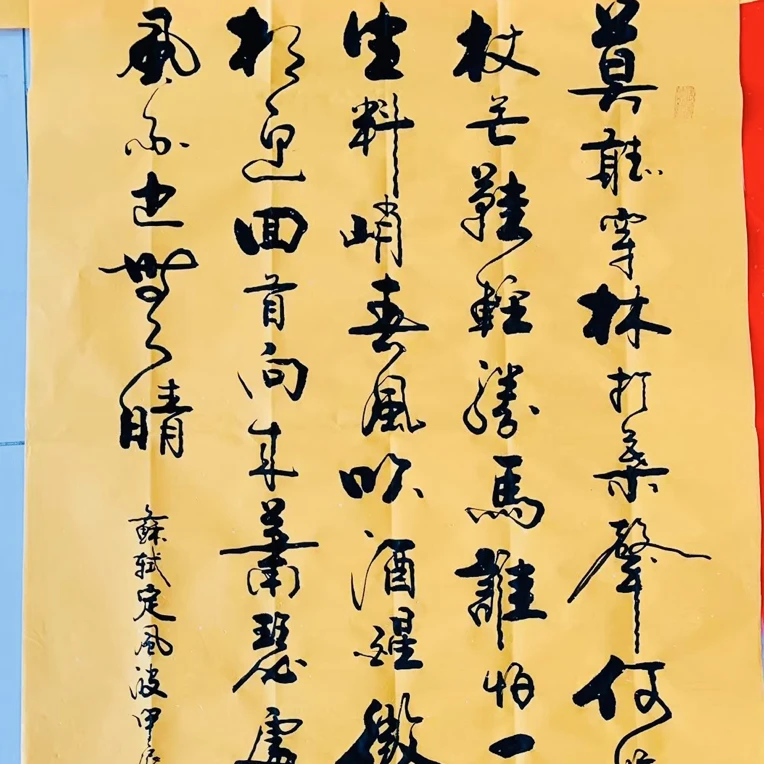 莫聽穿林打葉聲何
杖芒鞋輕勝馬誰怕一
生料峭春風吹酒醒微
相迎回首向來蕭瑟處
風雨也無晴
蘇軾定風波甲辰